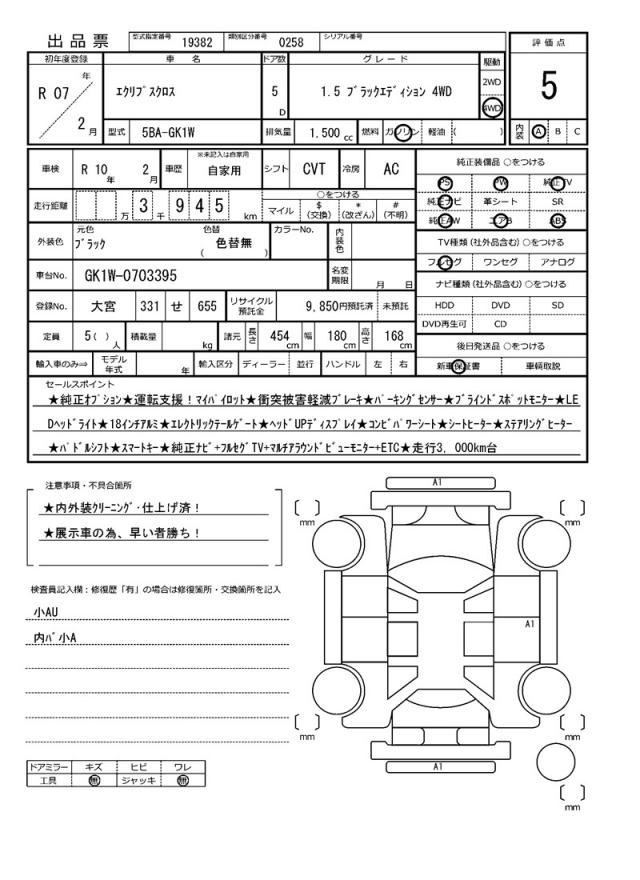 出品票 型式指定番号 19382 類別区分番号 0258 シリアル番号
初年度登録 車名 ドア数 グレード 駆動 評価点
R 07 年 2 月 エクリプスクロス 5 D 1.5 ブラックエディション 4WD 2WD 4WD 5
型式 5BA-GK1W 排気量 1.500 cc 燃料 ガソリン 軽油 ( ) 内装 A B C
車検 R 10 年 2 月 車歴 ※未記入は自家用 自家用 シフト CVT 冷房 AC 純正装備品 ○をつける
PS PW 純正TV
走行距離 万 3 千 9 4 5 km ○をつける 純正ナビ 革シート SR
マイル $ (交換) * (改ざん) # (不明) 純正AW エアB ABS
外装色 元色 ブラック 色替 色替無 ( ) カラーNo. 内装色 TV種類 (社外品含む) ○をつける
フルセグ ワンセグ アナログ
車台No. GK1W-0703395 名変期限 月 日 ナビ種類 (社外品含む) ○をつける
登録No. 大宮 331 せ 655 リサイクル預託金 9,850円預託済 未預託 HDD DVD SD
DVD再生可 CD
定員 5( ) 人 積載量 kg 諸元 長さ 454 cm 幅 180 cm 高さ 168 cm 後日発送品 ○をつける
輸入車のみ⇒ モデル年式 年 輸入区分 ディーラー 並行 ハンドル 左 右 新車保証書 車輌取説
セールスポイント
★純正オプション★運転支援！マイパイロット★衝突被害軽減ブレーキ★パーキングセンサー★ブラインドスポットモニター★LE
Dヘッドライト★18インチアルミ★エレクトリックテールゲート★ヘッドUPディスプレイ★コンビパワーシート★シートヒーター★ステアリングヒーター
★パドルシフト★スマートキー★純正ナビ+フルセグTV+マルチアラウンドビューモニター+ETC★走行3，000km台
注意事項・不具合箇所
★内外装クリーニング・仕上げ済！
★展示車の為、早い者勝ち！
検査員記入欄：修復歴「有」の場合は修復箇所・交換箇所を記入
小AU
内バ小A
ドアミラー キズ ヒビ ワレ
工具 無 ジャッキ 無
A1
mm mm
A1
mm mm
A1
mm